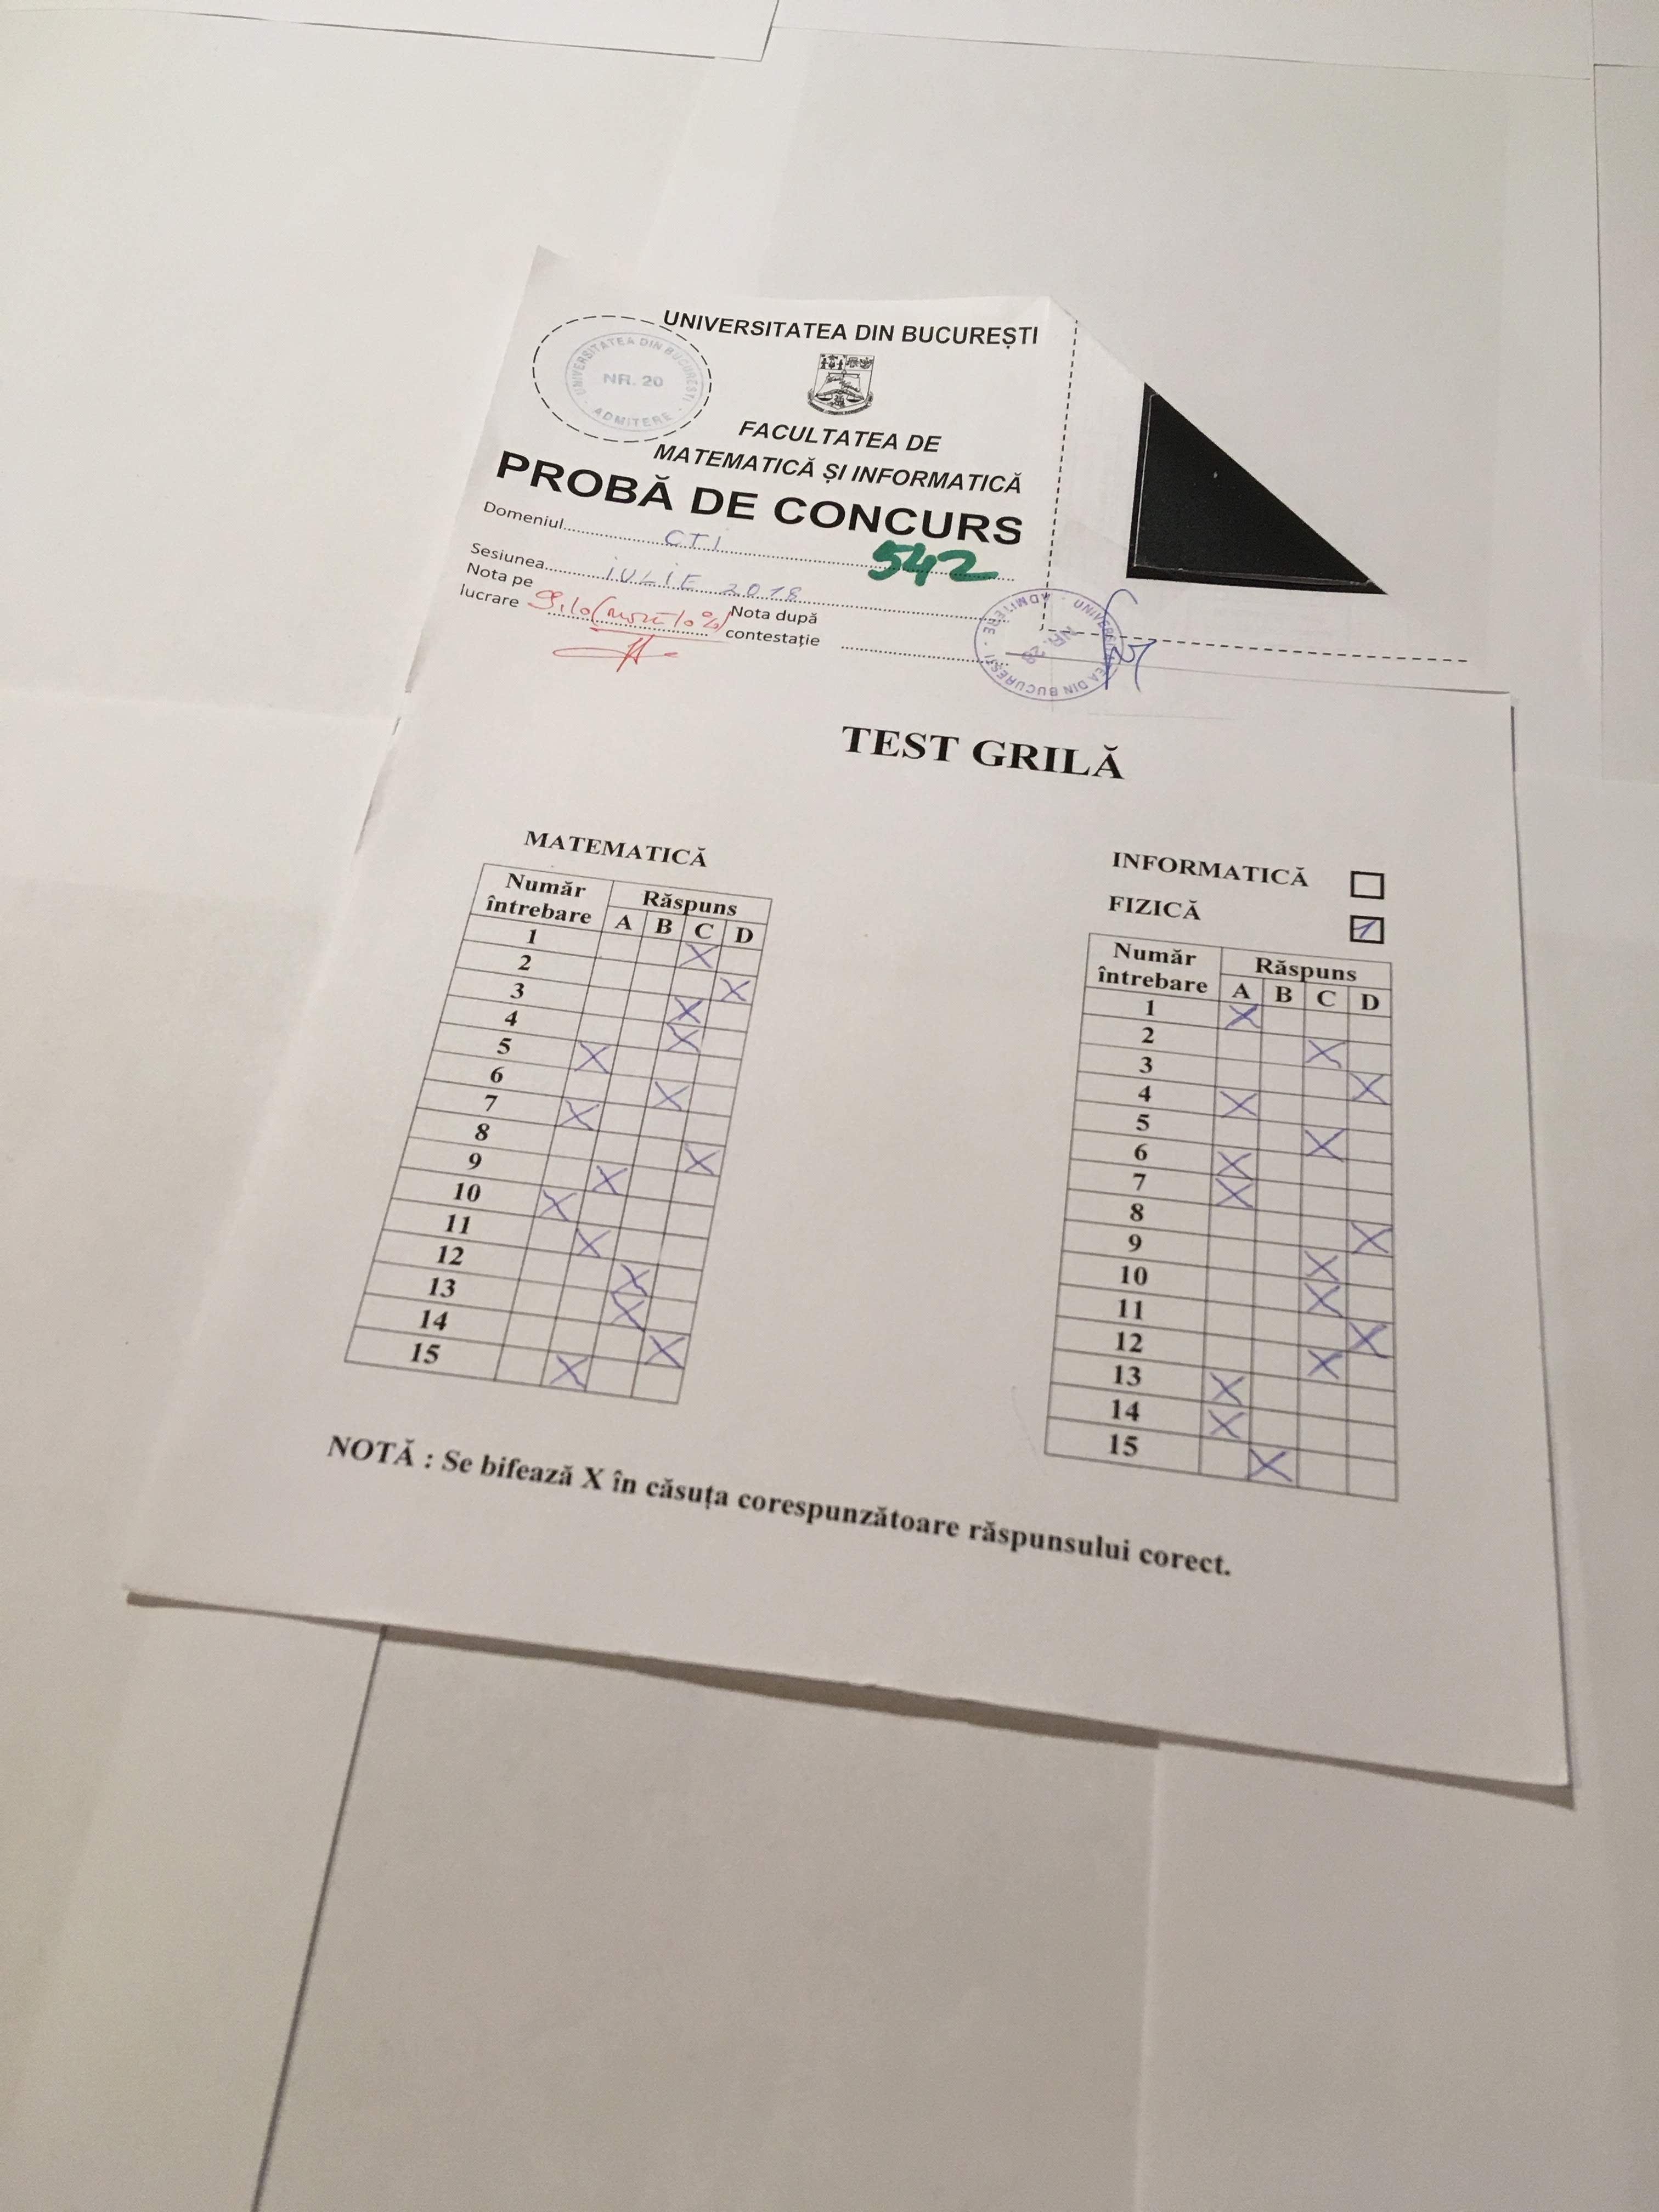 UNIVERSITATEA DIN BUCUREȘTI
UNIVERSITATEA DIN BUCUREȘTI
NR. 20
ADMITERE
FACULTATEA DE
MATEMATICĂ ȘI INFORMATICĂ
PROBĂ DE CONCURS
Domeniul CTI
542
Sesiunea IULIE 2018
Nota pe lucrare 9,10
Nota după contestație
UNIVERSITATEA DIN BUCUREȘTI
NR. 28
ADMITERE
TEST GRILĂ
MATEMATICĂ
Număr întrebare Răspuns
A B C D
1 X
2 X
3 X
4 X
5 X
6 X
7 X
8 X
9 X
10 X
11 X
12 X
13 X
14 X
15 X
INFORMATICĂ
FIZICĂ
Număr întrebare Răspuns
A B C D
1 X
2 X
3 X
4 X
5 X
6 X
7 X
8 X
9 X
10 X
11 X
12 X
13 X
14 X
15 X
NOTĂ : Se bifează X în căsuța corespunzătoare răspunsului corect.